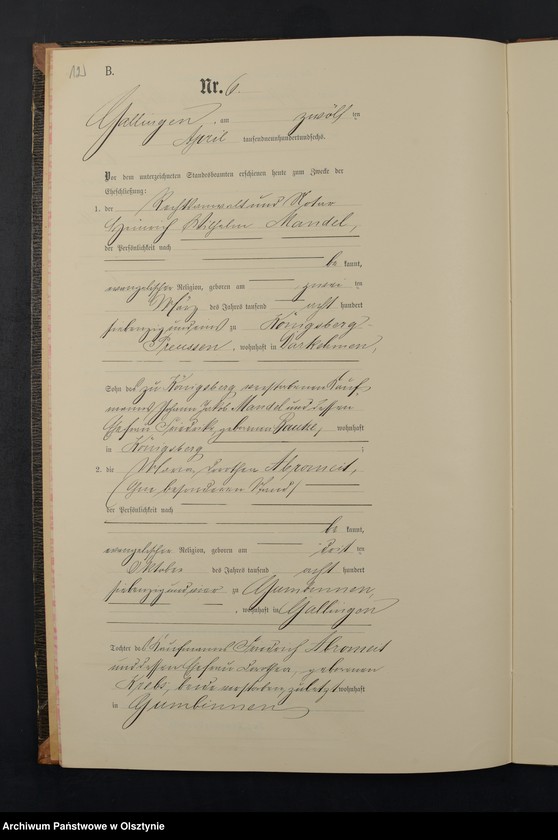 121
B.
Nr. 6.
Gallingen, am zwölf ten
April tausendneunhundertundsechs.
Vor dem unterzeichneten Standesbeamten erschienen heute zum Zwecke der
Eheschließung:
1. der Rechtsanwalt und Notar
Heinrich Wilhelm Mandel,
der Persönlichkeit nach
be kannt,
evangelischer Religion, geboren am zwei ten
März des Jahres tausend acht hundert
siebenzig und zu Königsberg
Preussen, wohnhaft in Darkehmen,
Sohn des zu Königsberg verstorbenen Kauf
manns Johann Jakob Mandel und dessen
Ehefrau geborenen wohnhaft
in Königsberg ;
2. die Maria Dorothea Abromeit,
ohne besonderen Stand
der Persönlichkeit nach
be kannt,
evangelischer Religion, geboren am ten
Oktober des Jahres tausend acht hundert
siebenzig und vier zu Gumbinnen,
, wohnhaft in Gallingen
Tochter des Kaufmanns Friedrich Abromeit
und dessen Ehefrau Dorothea, geborenen
Krebs, beide verstorben, zuletzt wohnhaft
in Gumbinnen
Archiwum Państwowe w Olsztynie